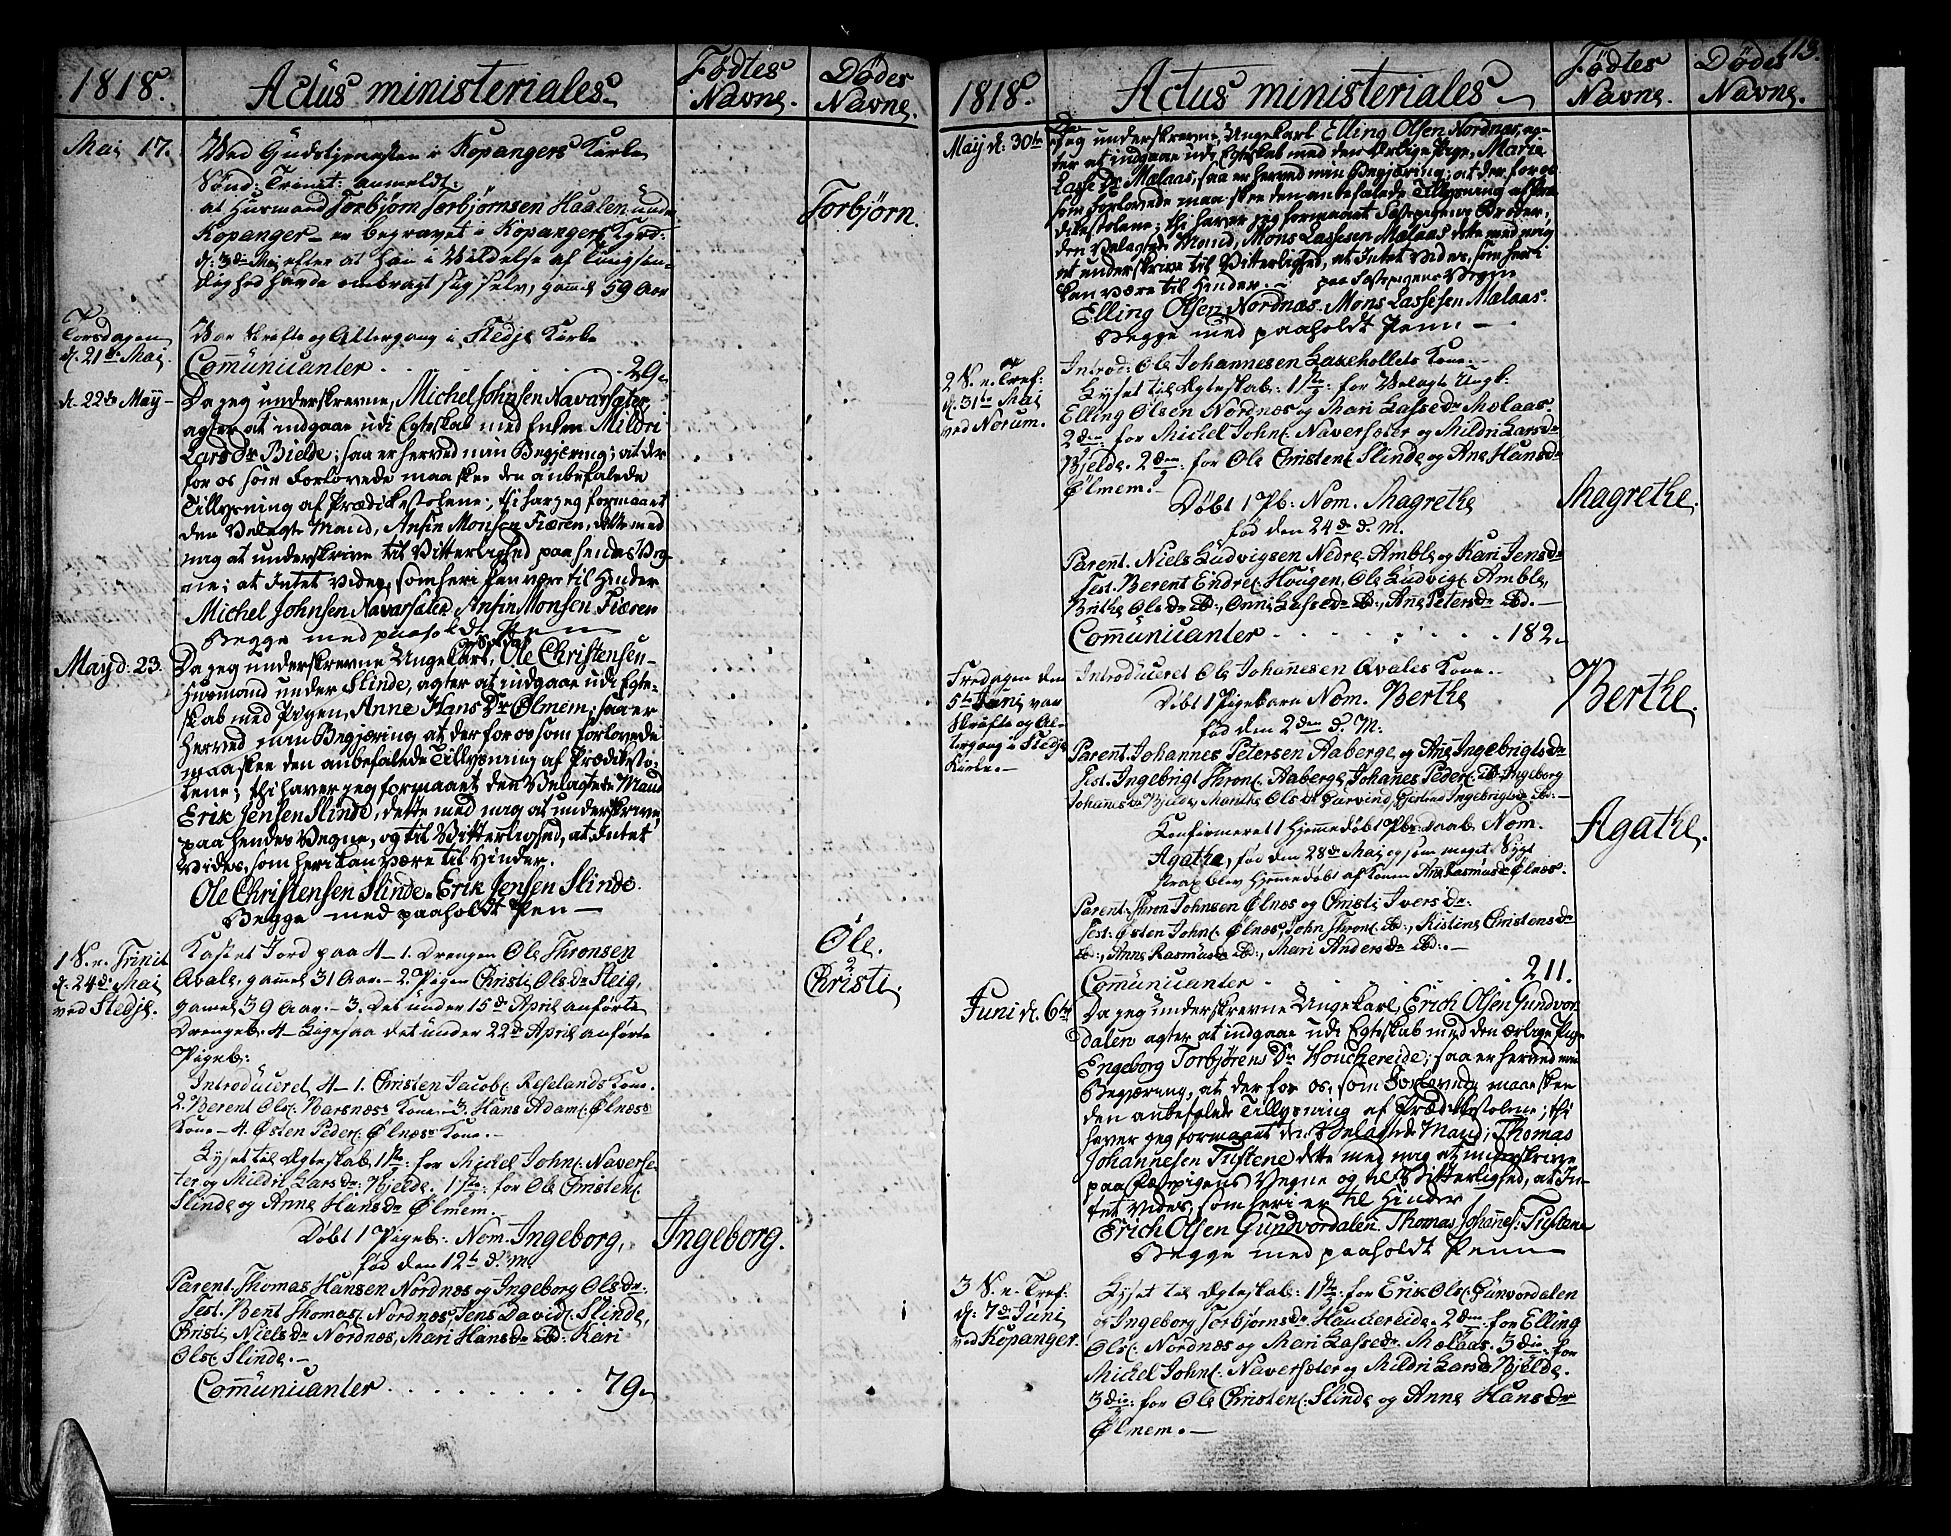 1818.
Actus ministeriales
Födtes Navne.
Dödes Navne.
Mai 17.
Ved Gudstjenesten i Kopangers Kirke
Sönd: Trinit: anmeldt:
at Husmand Torbjörn Torbjörnsen Haalen under
Kopanger er begravet i Kopangers Kgrd:
d: 3die Maj efter at han i Vildelse af Tungsin-
dighed havde ombragt sig selv, gammel 59 Aar
Torbjørn.
Torsdagen
d. 21de Mai
Var Skrifte og Altergang i Stedje Kirke
Communicanter . . . 29.
d. 22de Maÿ
Da jeg underskrevne, Michel Johnsen Navarsæter
agter at indgaae udi Egteskab med Enken Mildri
Lars Dr Bielde; saa er herved min Begjering; at der
for os som Forlovede maa skee den anbefalede
Tillysning af Prædikestolene; thi har jeg formaaet
den Velagte Mand, Ansin Monsen Fiæren, dette med
mig at underskrive til Vitterlighed paa hendes Veg-
ne; at Intet vides, som heri kan være til Hinder
Michel Johnsen Navarsæter, Ansin Monsen Fiæren
Begge med paaholdt Pen
May d. 23.
Da jeg underskrevne Ungekarl, Ole Christensen
Husmand under Slinde, agter at indgaae udi Egte-
skab med Pigen, Anne Hans Dr Ølmem; saa er
herved min Begjæring at der for os som forlovede
maa skee den anbefalede Tillysning af Prædiksto-
lene; thi haver jeg formaaet den Velagtede Mand
Erik Jensen Slinde, dette med mig at underskrive
paa hendes Vegne, og til Vitterlighed, at Intet
Vides, som heri kan være til Hinder.
Ole Christensen Slinde. Erik Jensen Slinde.
Begge med paaholdt Pen
1 S. e. Trinit
d. 24de Mai
ved Stedje.
Kastet Jord paa 4 – 1. Drengen Ole Thronsen
Avale, gammel 31 Aar – 2. Pigen Christi Ols Dr Steig,
gamel 39 Aar. – 3. Det under 15de April anförte
Drengeb. 4 – Ligesaa det under 22de April anförte
Pigeb:
Øle.
2
Christi.
Introduceret 4 – 1. Christen Jacobs. Reselands Kone.
2. Berent Ols: Barsnæs Kone. – 3. Hans Adams. Ølnæs
Kone – 4. Østen Peders. Ølnæs Kone. –
Lyset til Egteskab 1ste: for Mickel Johns. Naversæ-
ter og Mildri Lars Dr Bjelde. 1ste: for Ole Christens.
Slinde og Anne Hans Dr Ølmem.
Döbt 1 Pigeb. Nom. Ingeborg,
föd den 12te d. M.
Ingeborg.
Parent. Thomas Hansen Nordnæs og Ingeborg Ols Dr:
Test. Bent Thomas. Nordnæs, Jens Davids. Slinde,
Christi Niels Dr Nordnæs, Mari Hans Dr ibd. Kari
Ols. Slinde. –
Communicanter . . . . . . . . 79.
113.
1818.
Actus ministeriales
Födtes Navne.
Dödes Navne.
May d: 30te
Da Jeg underskrevne Ungekarl Elling Olsen Nordnæs, ag-
ter at indgaae udi Egteskab med den Ærlige Pige, Marie
Lasse Dr Mælaas, saa er herved min Begjæring; at der for os
som forlovede maa skee den anbefalede Tillysning af Præ-
dikestolene; thi haver jeg formaaet Fæstepigens Broder,
den Velagtede Mand, Mons Lassesen Malaas dette med mig
at underskrive til Vitterlighed, at Intet Vides, som heri
kan være til Hinder. – paa Fæstepigens Vegne
Elling Olsen Nordnæs. Mons Lassesen Malaas.
Begge med paaholdt Penn. –
2 S. e. Tref:
d. 31te Mai
ved Norum.
Introd: Ole Johannesen Laxehollets Kone. –
Lyset til Egteskab: 1ste: for Velagte Ungk.
Elling Olsen Nordnæs og Mari Lasse Dr Mælaas.
2den: for Mickel Johns. Naversæter og Mildri Lars Dr
Bjelde. 2den: for Ole Christens. Slinde og Ane Hans Dr
Ølmem. –
Döbt 1 Pb. Nom. Magrethe
föd den 24de d. M.
Magrethe.
Parent. Niels Ludvigsen Nedre Amble og Kari Jens Dr
Test. Berent Endres. Hougen, Ole Ludvigs. Amble,
Brithe Ols Dr ibd., Onni Lasse Dr ibd., Ane Peters Dr ibd. –
Communicanter . . . . . . . 182.
Fredagen den
5te Juni var
Skrifte og Al-
tergang i Stedje
Kirke. –
Introduceret Ole Johanesen Avales Kone. –
Döbt 1 Pigebarn Nom. Berthe
föd den 2den d. M.
Berthe.
Parent. Johannes Petersen Aaberge og Ane Ingebrigts Dr
Test. Ingebrigt Throns. Aaberge, Johanes Peders. ibd. Ingeborg
Johanes Dr Bjelde, Marithe Ols Dr Qvarvind, Gjertrud Ingebrigts Dr ibd. –
Konfirmeret 1 Hjemmedöbt Pb: daab. Nom.
Agathe, föd den 28de Maj og som meget Sygt
strax blev Hjemmedöbt af Konen Ane Rasmus Dr Ølnæs.
Agathe.
Parent: Thron Johnsen Ølnæs og Christi Ivers Dr.
Test. Østen Johns. Ølnæs, John Throns. ibd., Kistine Christens Dr
ibd., Anne Rasmus Dr ibd., Mari Anders Dr ibd. –
Communicanter . . . 211.
Juni d. 6te
Da jeg underskrevne Ungekarl, Erich Olsen Gundvor-
dalen agter at indgaae udi Egteskab med den ærlige Pige
Engeborg Torbjörens Dr Houckereide; saa er herved min
Begjæring, at der for os, som Forlovede maa skee
den anbefalede Tillysning af Prædikestolene; thi
haver jeg formaaet den Velagtede Mand, Thomas
Johannesen Tustene dette med mig at underskrive
paa Fæstepigens Vegne og til Vitterlighed, at In-
tet Vides, som heri er til Hinder
Erich Olsen Gundvordalen. Thomas Johannes: Tustene
Begge med paaholdt Penn
3 S. e. Tref:
d: 7de Juni
ved Kopanger.
Lyset til Egteskab: 1ste: for Erik Ols. Gunvordalen
og Ingeborg Torbjörns Dr Haukereide. 2den for Elling
Ols. Nordnæs og Mari Lasse Dr Mælaas. 3die for
Mickel Johns. Naversæter og Mildri Lars Dr Bjelde.
3die: for Ole Christens. Slinde og Anne Hans Dr
Ølmem. –